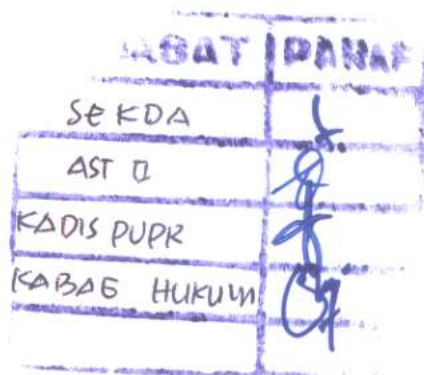 PARAF
SEKDA
AST II
KADIS PUPR
KABAG HUKUM